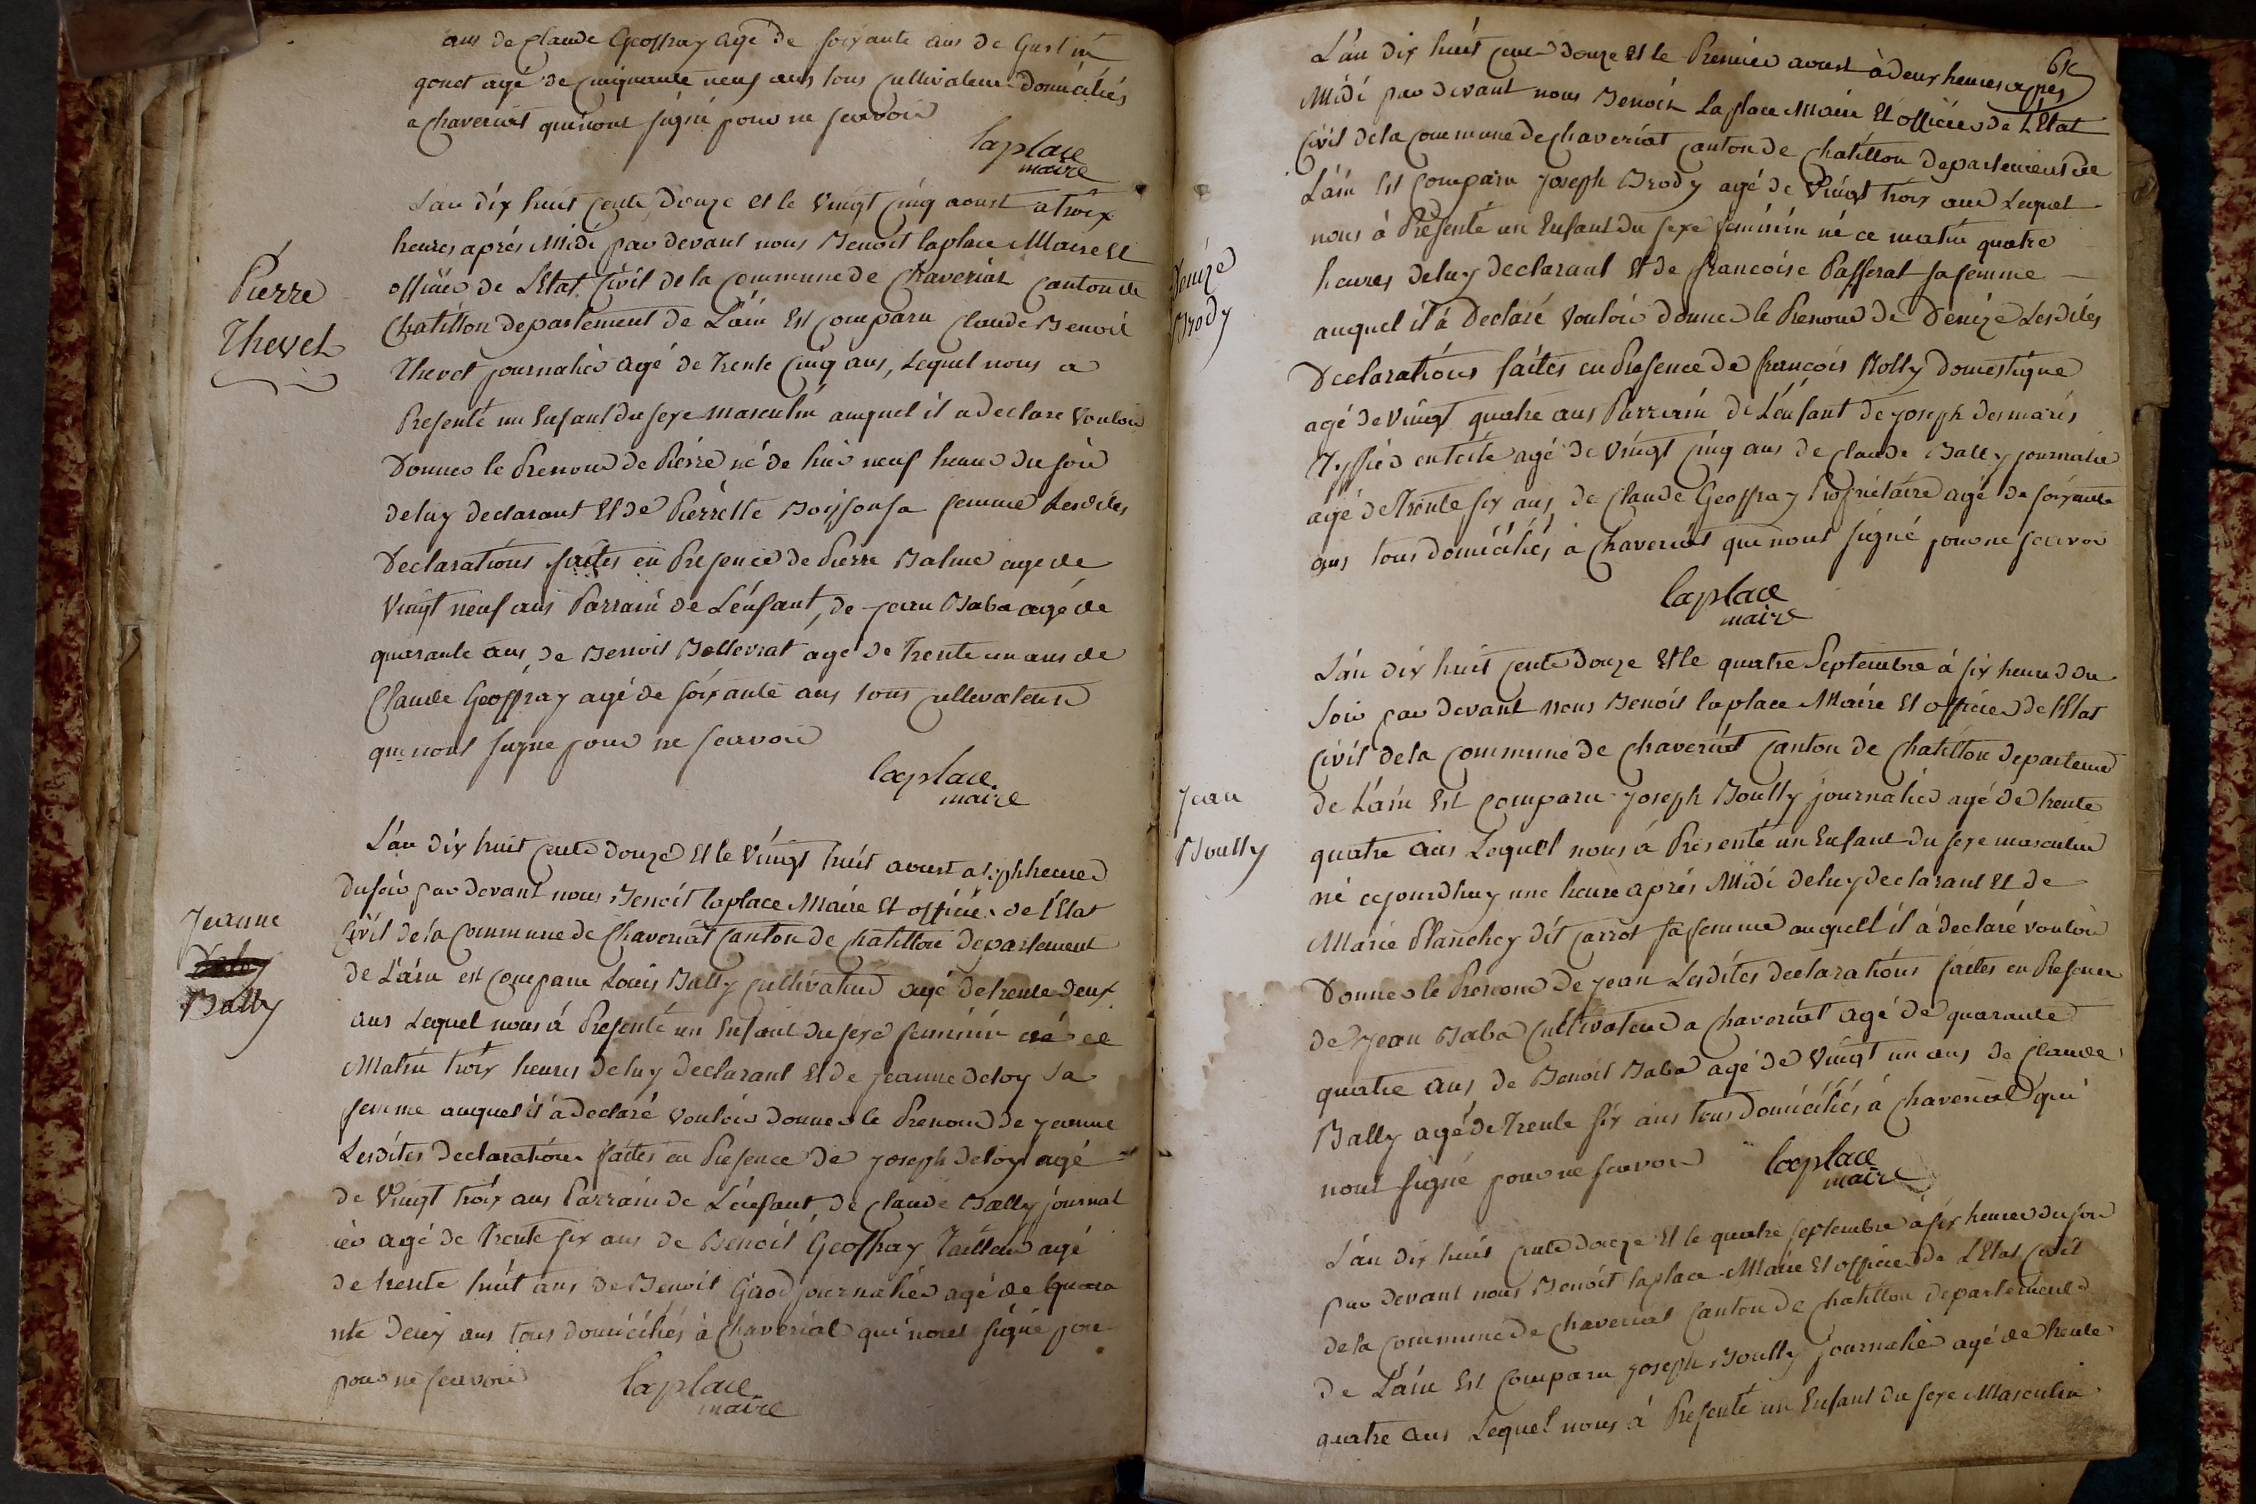 ans de Claude Geoffray agé de soixante ans de
gonet agé de Cinquante neuf ans tous Cultivateur domiciliés
a Chaveriat qui nont signé pour ne scavoir
laplace
maire
Pierre
Thevet
L'an dix huit cents douze et le vingt Cinq aoust a trois
heures aprés Midi par devant nous Benoit laplace Maire Et
officier de L'Etat Civil de la Commune de Chaveriat Canton de
Chatillon departement de L'ain Est Comparu Claude Benoit
Thevet journalier agé de Trente Cinq ans, Lequel nous a
Presenté un Enfant du sexe masculin auquel il a declaré vouloir
Donner le Prenom de Pierre né de hier neuf heures du soir
de luy declarant Et de Pierrette Boisson sa femme Lesdites
Declarations faites en Presence de Pierre Balme agé de
Vingt neuf ans Parrain de L'enfant, de jean Baba agé de
quarante ans, de Benoit Bellevrat agé de Trente un ans de
Claude Geoffray agé de soixante ans tous cultivateurs
qui nont signe pour ne scavoir
laplace
maire
Jeanne
Bally
L'an dix huit Cents douze Et le Vingt huit aoust a sept heures
du soir par devant nous Benoit laplace Maire Et officier de l'Etat
Civil de la Commune de Chaveriat Canton de Chatillon departement
de L'ain est Comparu Louis Bally Cultivateur agé de trente deux
ans Lequel nous á Presenté un Enfant du sexe feminin né ce
Matin trois heures de luy declarant Et de jeanne deloy sa
femme auquel il á declaré vouloir donner le Prenom de jeanne
Lesdites declarations faites en Presence de joseph deloy agé
de Vingt trois ans Parrain de L'enfant, de Claude Bally journal
ier agé de Trente six ans de Benoit Geoffray Tailleur agé
de trente huit ans de Benoit journalier agé de quara
nte deux ans tous domiciliés à Chaveriat qui nont signé pou
pour ne scavoir
laplace
maire
L'an dix huit cents douze Et le Premier aoust à deux heures apres
Midi par devant nous Benoit Laplace Maire Et officier de L'Etat
Civil de la Commune de Chaveriat Canton de Chatillon departement de
L'ain Est Comparu joseph Brody agé de Vingt trois ans Lequel
nous á Présenté un Enfant du sexe feminin né ce matin quatre
Denize
Brody
heures de luy declarant Et de francoise Passerat sa femme
auquel il á Declaré vouloir donner le Prenom de Denize Lesdites
Declarations faites en Presence de francois Bolly domestique
agé de Vingt quatre ans Parrain de L'enfant de joseph desmaris
agé de Vingt Cinq ans de Claude Bally journalier
agé de Trente six ans de Claude Geoffray Proprietaire agé de soixante
ans tous domiciliés à Chaveriat qui nont signé pour ne scavoir
laplace
maire
L'an dix huit cents douze Et le quatre Septembre á six heures du
soir par devant nous Benoit laplace Maire Et officier de l'Etat
Civil de la Commune de Chaveriat Canton de Chatillon departement
jean
Boully
de L'ain Est Comparu joseph Boully journalier agé de trente
quatre ans Lequel nous á Presenté un Enfant du sexe masculin
né cejourdhuy une heure aprés Midi de luy declarant Et de
Marie Planchey dit Carrot sa femme auquell il á declaré vouloir
Donner le Prenom de jean Lesdites declarations faites en Presence
de jean Baba Cultivateur a Chaveriat agé de quarante
quatre ans de Benoit Baba agé de Vingt un ans de Claude
Bally agé de Trente six ans tous domiciliés á Chaveriat qui
nont signé pour ne scavoir
laplace
maire
L'an dix huit cents douze Et le quatre septembre a six heures du soir
par devant nous Benoit laplace Maire Et officier de L'Etat Civil
de la Commune de Chaveriat Canton de Chatillon departement
de L'ain Est Comparu joseph Boully journalier agé de trente
quatre ans Lequel nous á Presenté un Enfant du sexe Masculin